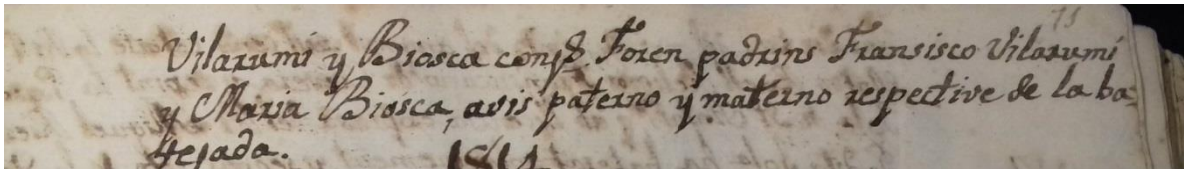 75
Vilarumí y Biosca conj.s Foren padrins Fransisco Vilarumí
y Maria Biosca, avis paterno y materno respective de la ba-
tejada.
1814